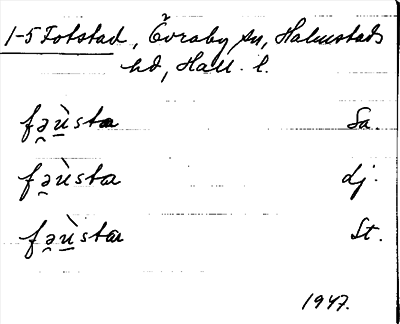 1-5 Fotstad, Övraby sn, Halmstads
hd, Hall. l.
fə̯ùsta Sa.
fə̯ùsta dj.
fə̯ùsta St.
1947.